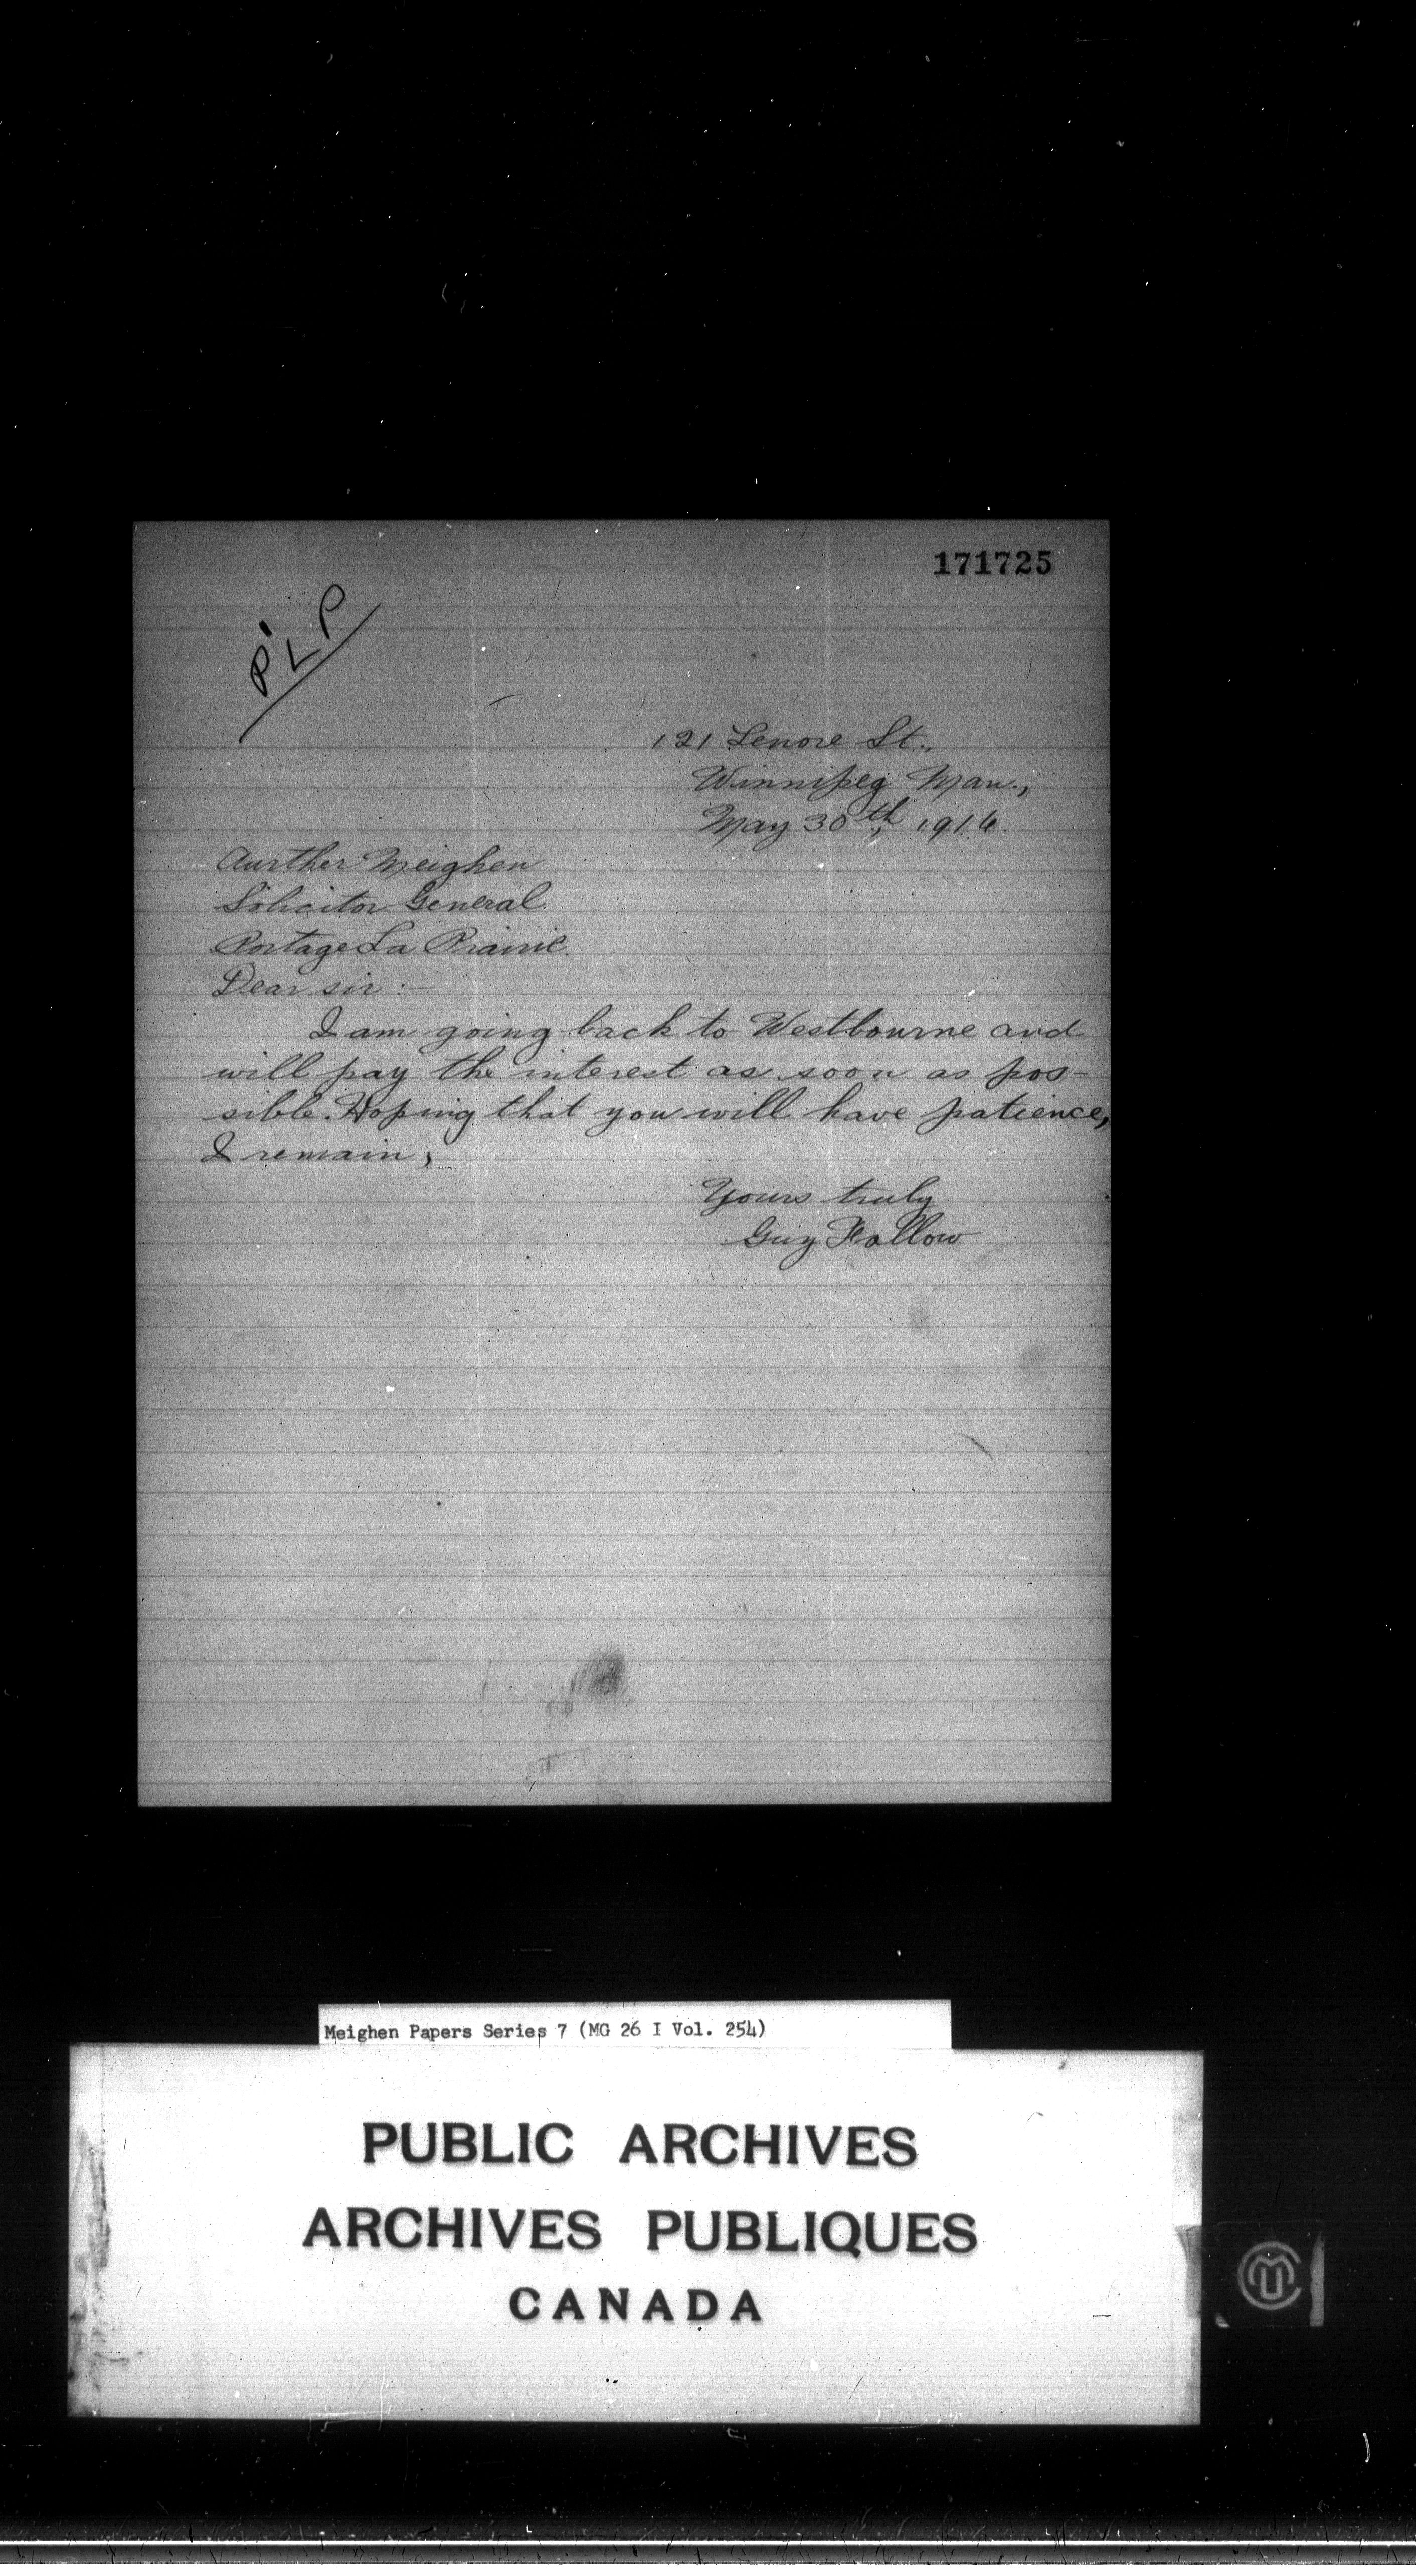 171725
P.L.P
121 Lenore St.,
Winnipeg Man.,
May 30th, 1916.
Aurther Meighen
Solicitor General
Portage La Prairie.
Dear sir :—
I am going back to Westbourne and
will pay the interest as soon as pos-
sible. Hoping that you will have patience,
I remain,
Yours truly
Guy Fallow
Meighen Papers Series 7 (MG 26 I Vol. 254)
PUBLIC ARCHIVES
ARCHIVES PUBLIQUES
CANADA